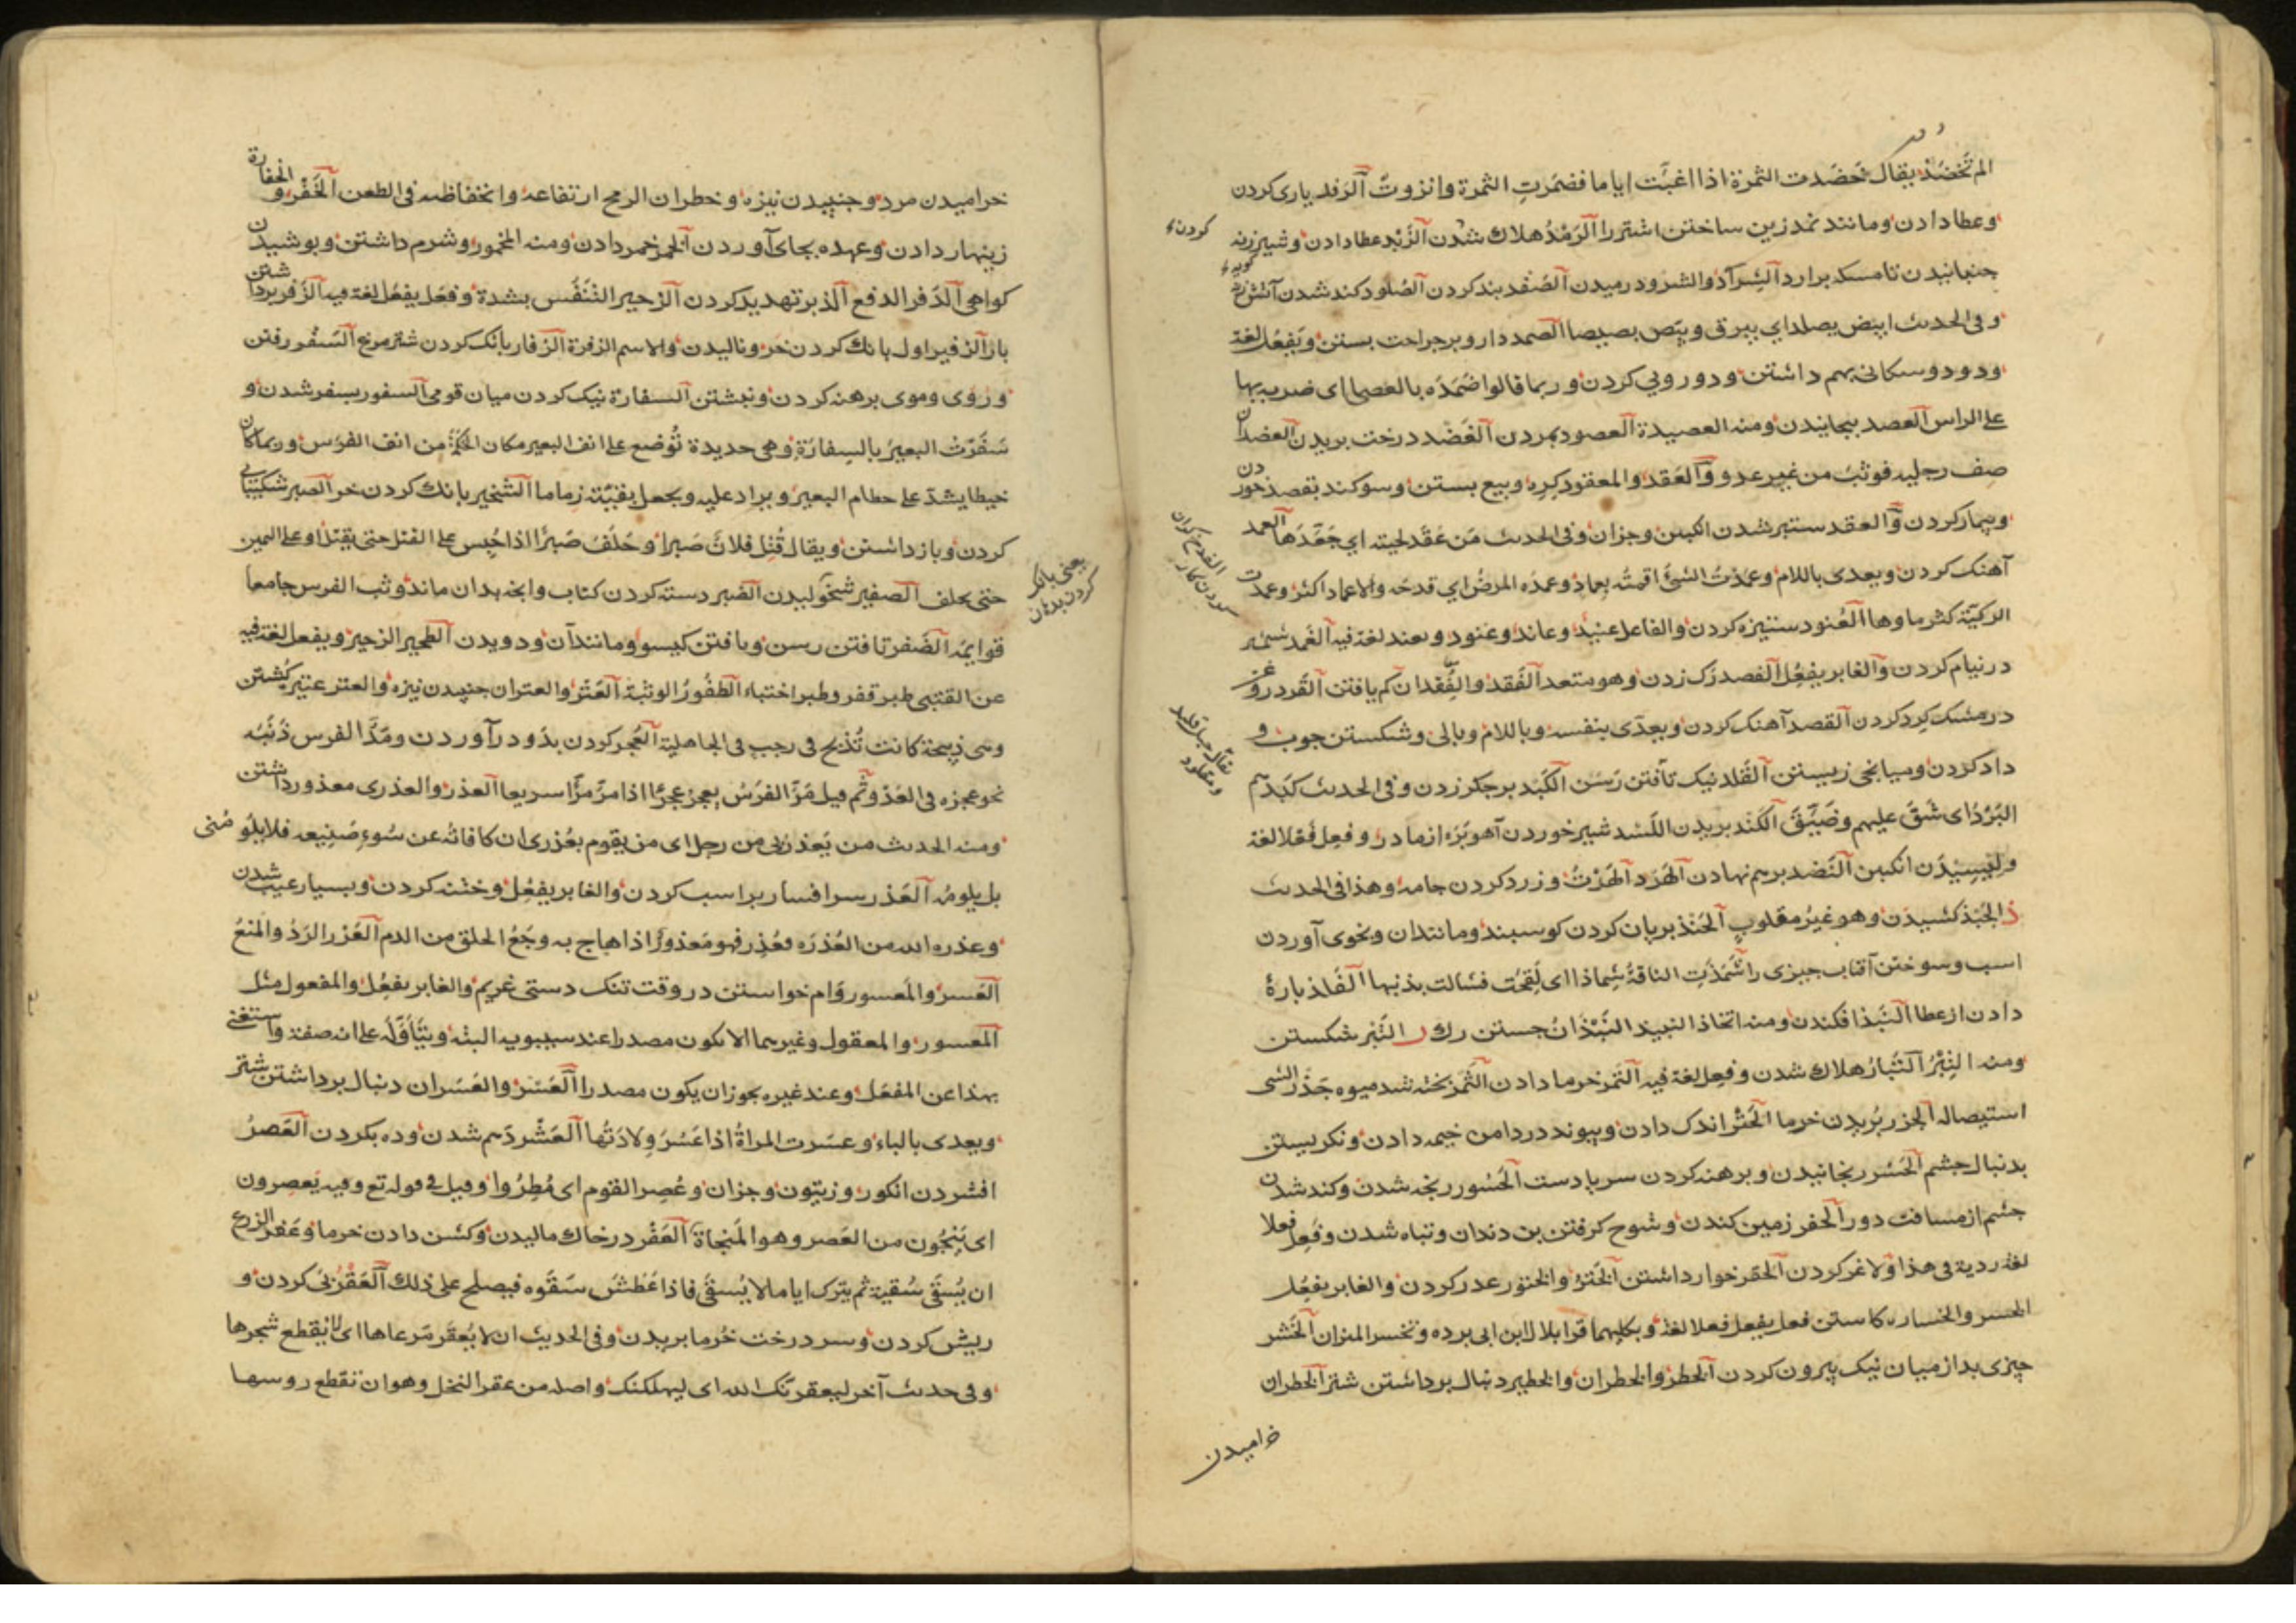 المتخضد يقال تخضدت الثمرة اذا اغبت اياما فضمرت الثمرة وانزوت الرفد ياری کردن
وعطا دادن ومانند نمدزین ساختن اشتر را الرمد هلاك شدن الزبد عطا دادن وشیر زنه
جنبانیدن تا مسکه برارد الشراد والشرود رمیدن الصفد بند کردن الصلود کند شدن آتش
وفی الحدیث ابیض یصلد ای یبرق ویبص بصیصا الصمد دارو بر جراحت بستن ویفعل لغة
ودو دوسکانی بهم داشتن ودو رویی کردن وربما قالوا ضمده بالعصا ای ضربه بها
علی الراس العصد بیجانیدن ومنه العصیدة العصود بمردن العضد درخت بریدن العضدان
صف رجلیه فوثب من غیر عدو والعقد والمعقود کره وبیع بستن وسوکند بقصد خوردن
وبیمار کردن والعقد ستبر شدن انکبین وجزان وفی الحدیث من عقد لحیته ای جعدها العمد
آهنك کردن ویعدی باللام وعمدت الشئ اقمته بعماد وعمده المرض ای فدحه والاعماد اکثر وعمدت
الرکیة کثر ماوها العنود ستیزه کردن والفاعل عنید وعاند وعنود ویعند لغة فیه الغمد شمشیر
در نیام کردن والغابر یفعل الفصد رک زدن وهو متعد الفقد والفقدان کم یافتن القرد روغن
در مشک کرد کردن القصد آهنک کردن ویعدی بنفسه وباللام وبالی وشکستن جوب و
داد کردن ومیانجی زیستن القلد نیک تافتن رسن الکبد بر جکر زدن وفی الحدیث کبدهم
البرد ای شق علیهم وضیق الکند بریدن اللسد شیر خوردن آهوبره از مادر وفعل فعلا لغة
ولیسیدن انکبین النضد برهم نهادن الهرد الهرت وزرد کردن جامه وهذا فی الحدیث
ذ الجبذ کشیدن وهو غیر مقلوب الحنذ بریان کردن کوسبند ومانندان وبخوی آوردن
اسب وسوختن آفتاب جیزی را شمذت الناقة شماذا ای لقحت فشالت بذنبها الفلذ بارهٔ
دادن از عطا النبذ افکندن ومنه اتخاذ النبیذ النبذان جستن رك ر التبر شکستن
ومنه التبر التبار هلاك شدن وفعل لغة فیه التمر خرما دادن الثمر بخته شد میوه جذر الشی
استیصاله الجزر بریدن خرما الحتر اندک دادن وبیوند در دامن خیمه دادن ونکریستن
بدنبال جشم الحسر رنجانیدن وبرهنه کردن سر یا دست الحسور رنجه شدن وکند شدن
جشم از مسافت دور الحفر زمین کندن وشوح کرفتن بن دندان وتباه شدن وفعل فعلا
لغة ردیة فی هذا ولاغر کردن الحقر خوار داشتن الختر والختور غدر کردن والغابر یفعل
الخسر والخساره کاستن فعل یفعل فعلا لغة وبکلیهما قرا بلال ابن ابی برده وتخسر المیزان الخشر
جیزی بد از میان نیک بیرون کردن الخطر والخطران والخطیر دنبال برداشتن شتر الخطران
خرامیدن
خرامیدن مرد وجنبیدن نیزه وخطران الرمح ارتفاعه وانخفاظه فی الطعن الخفر والخفارة
زینهار دادن وعهده بجای آوردن الخمر خمر دادن ومنه المخمور وشرم داشتن وبوشیدن
کواهی الدفر الدفع الذبر تهدید کردن الزحیر التنفس بشدة وفعل یفعل لغة فیه الزفر برداشتن
بار الزفیر اول بانك کردن خر ونالیدن والاسم الزفرة الزفار بانک کردن شتر مرغ السفر رفتن
وروی وموی برهنه کردن ونبشتن السفارة نیک کردن میان قومی السفور بسفر شدن و
سفرت البعیر بالسفارة وهی حدیدة توضع علی انف البعیر مکان الحکمة من انف الفرس وربما کان
خیطا یشد علی خطام البعیر ویراد علیه ویجعل بقیته زماما الشخیر بانك کردن خر الصبر شکیبائی
کردن وباز داشتن ویقال قتل فلان صبرا وحلف صبرا اذا حبس علی القتل حتی یقتل او علی الیمین
حتی یحلف الصفیر شخولیدن الضبر دسته کردن کتاب وانجه بدان ماند وثب الفرس جامعا
یعنی بانک کردن بدهان
قوایمه الضفر تافتن رسن وبافتن کیسو ومانند آن ودویدن الطحیر الزحیر ویفعل لغة فیه
عن القتبی طبر قفر وطبر اختباء الطفور الوثبة العتر والعتران جنبیدن نیزه والعتر عتیره کشتن
وهی ذبیحة کانت تذبح فی رجب فی الجاهلیة العجر کردن بدو در آوردن ومد الفرس ذنبه
نحو عجزه فی العدو ثم قیل مر الفرس یعجر عجرا اذا مر مرا سریعا العذر والعذری معذور داشتن
ومنه الحدیث من یعذرنی من رجل ای من یقوم بعذری ان کافاته عن سوء صنیعه فلا یلومنی
بل یلومه العذر سر افسار بر اسب کردن والغابر یفعل وختنه کردن وبسیار عیب شدن
وعذره الله من العذره فعذر فهو معذور اذا هاج به وجع الحلق من الدم العزر الرد والمنع
العسر والمعسور وام خواستن در وقت تنک دستی غریم والغابر یفعل والمفعول مثل
المعسور والمعقول وغیرهما لا یکون مصدرا عند سیبویه البتة ویتأوله علی انه صفة واستغنی
بهذا عن المفعل وعند غیره یجوز ان یکون مصدرا العسر والعسران دنبال برداشتن شتر
ویعدی بالباء وعسرت المراة اذا عسر ولادتها العشر دهم شدن وده یکردن العصر
افشردن انکور وزیتون وجزان وعصر القوم ای مطروا وقیل فی قوله تع وفیه یعصرون
ای ینجون من العصر وهو المنجاة العفر در خاك مالیدن وکشن دادن خرما وعفر الزرع
ان یسقی سقیة ثم یترک ایاما لا یسقی فاذا عطش سقوه فیصلح علی ذلك العقر پی کردن و
ریش کردن وسر درخت خرما بریدن وفی الحدیث ان لا یعقر مرعاها ای لا یقطع شجرها
وفی حدیث آخر لیعقرنک الله ای لیهلکنک واصله من عقر النخل وهو ان تقطع روسها